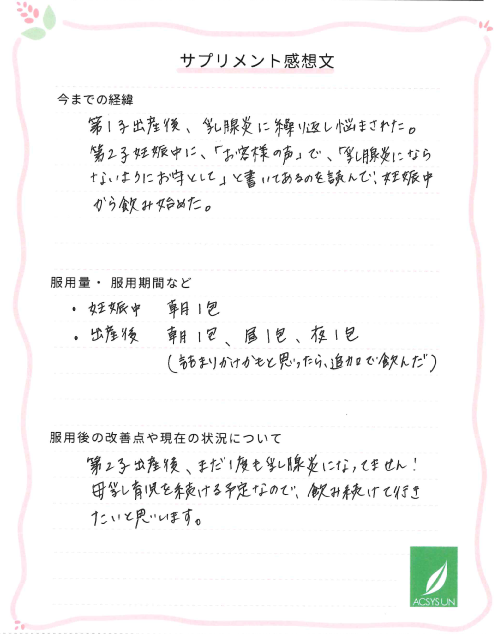 サプリメント感想文
今までの経緯
第1子出産後、乳腺炎に繰り返し悩まされた。
第2子妊娠中に、「お客様の声」で、「乳腺炎になら
ないようにお守として」と書いてあるのを読んで、妊娠中
から飲み始めた。
服用量・服用期間など
・妊娠中 朝1包
・出産後 朝1包、昼1包、夜1包
（詰まりかけかもと思ったら、追加で飲んだ）
服用後の改善点や現在の状況について
第2子出産後、まだ1度も乳腺炎になってません！
母乳育児を続ける予定なので、飲み続けて行き
たいと思います。
ACSYSUN